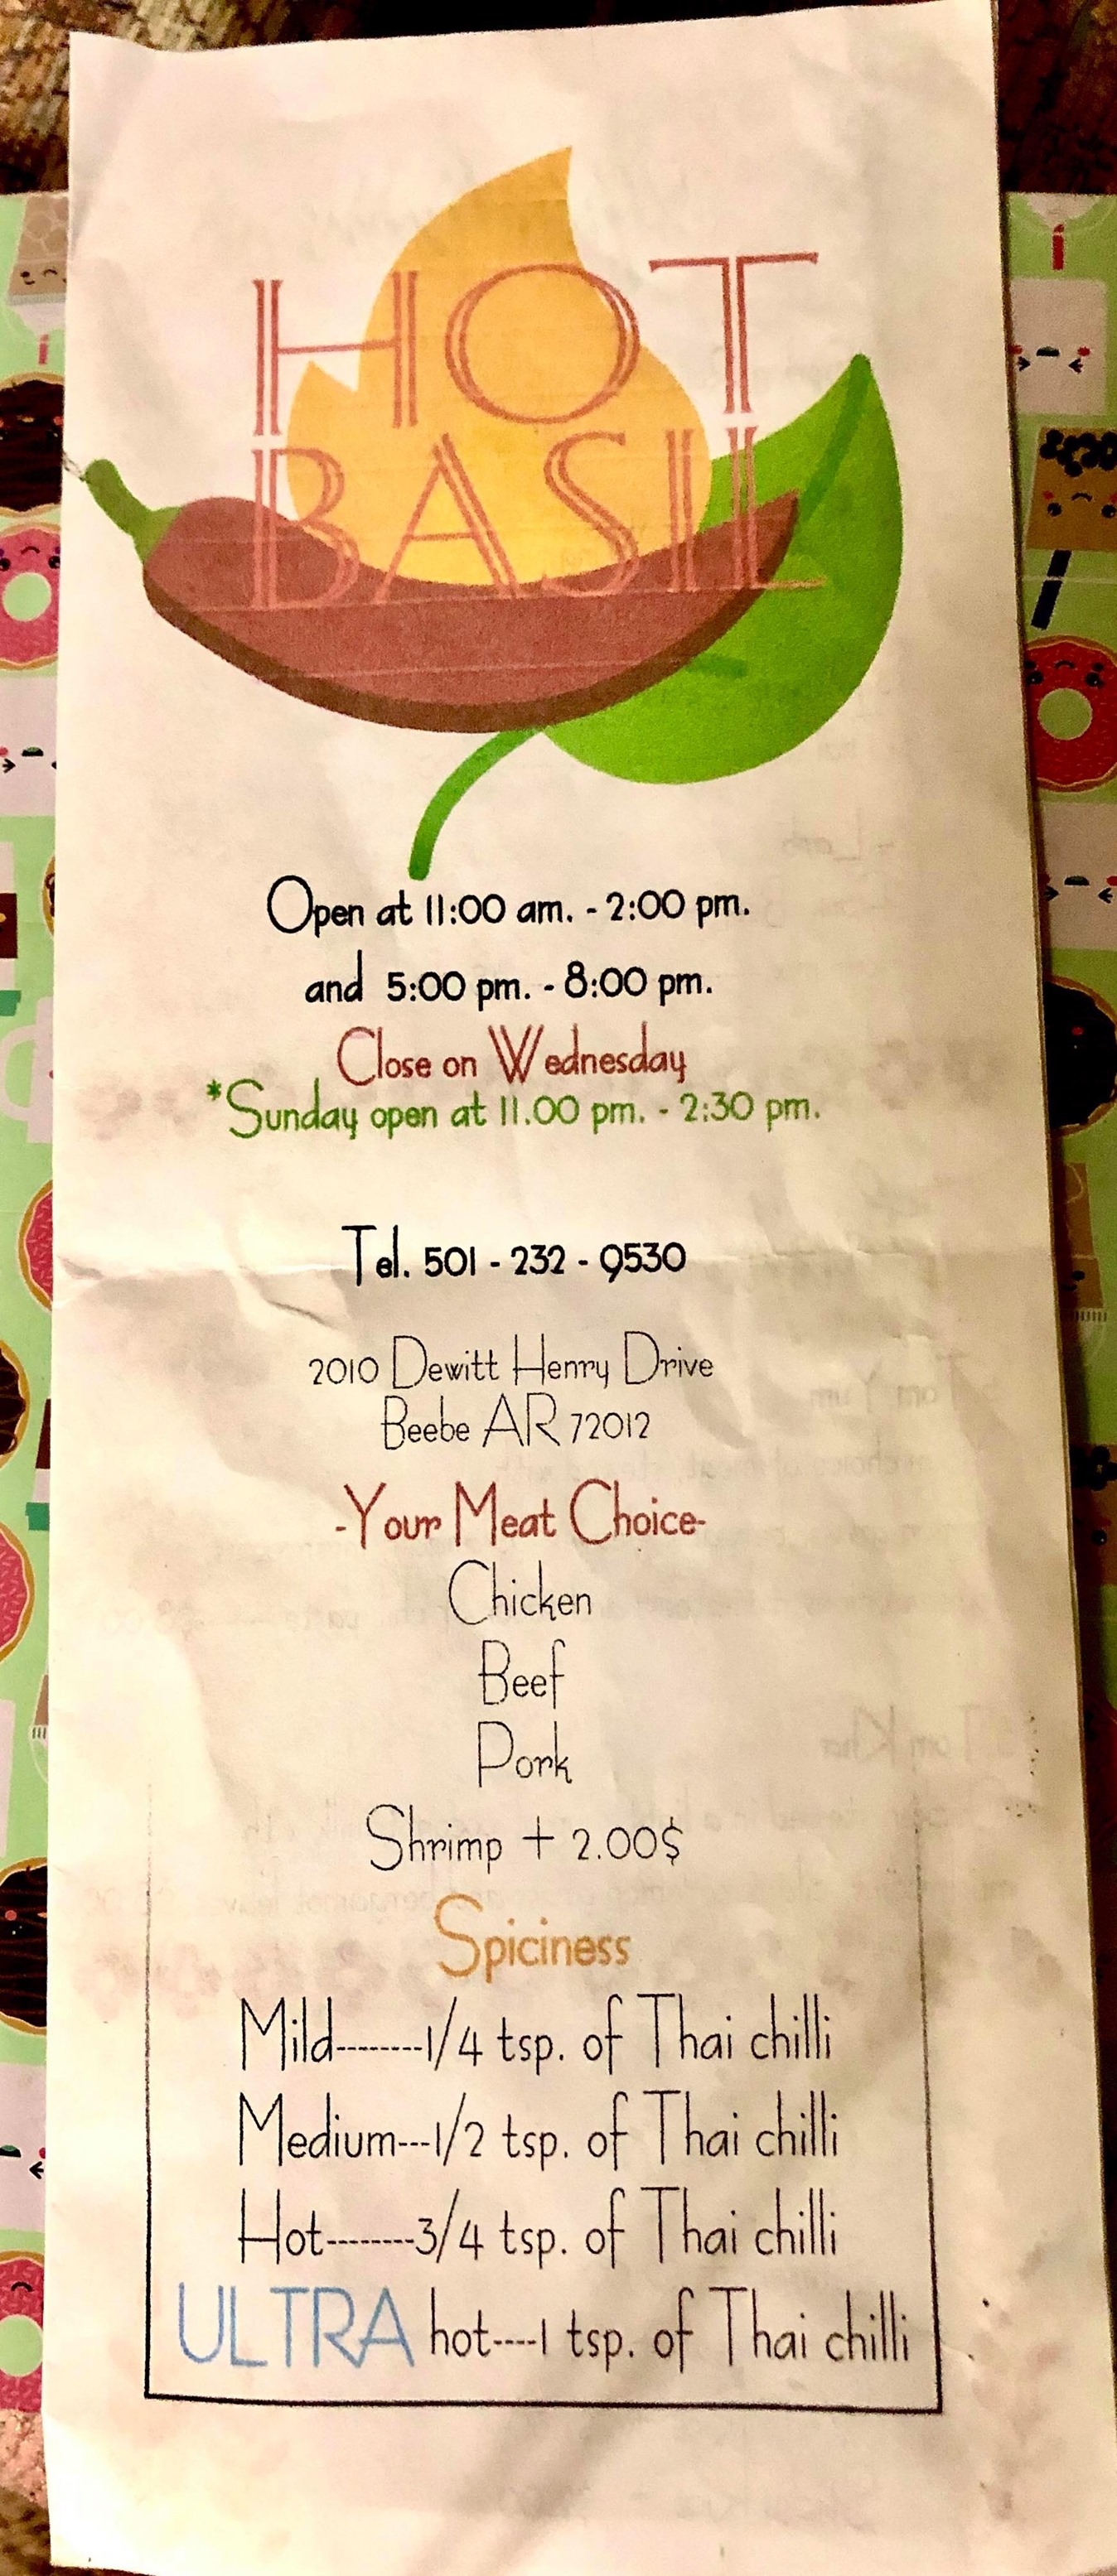 HOT
BASIL
Open at 11:00 am. - 2:00 pm.
and 5:00 pm. - 8:00 pm.
Close on Wednesday
*Sunday open at 11.00 pm. - 2:30 pm.
Tel. 501 - 232 - 9530
2010 Dewitt Henry Drive
Beebe AR 72012
-Your Meat Choice-
Chicken
Beef
Pork
Shrimp + 2.00$
Spiciness
Mild--------1/4 tsp. of Thai chilli
Medium---1/2 tsp. of Thai chilli
Hot--------3/4 tsp. of Thai chilli
ULTRA hot----1 tsp. of Thai chilli